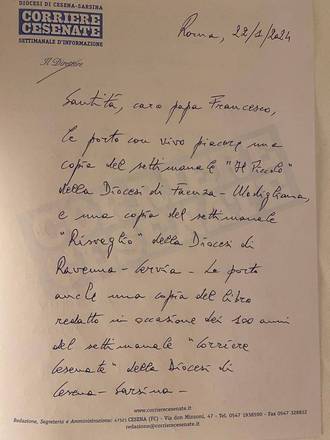 DIOCESI DI CESENA-SARSINA
CORRIERE
CESENATE
SETTIMANALE D'INFORMAZIONE
Il Direttore
Roma, 22/1/2024
Santità, caro papa Francesco,
le porto con vivo piacere una
copia del settimanale "Il Piccolo"
della Diocesi di Faenza-Modigliana,
e una copia del settimanale
"Risveglio" della Diocesi di
Ravenna-Cervia - Le porto
anche una copia del libro
redatto in occasione dei 100 anni
del settimanale "Corriere
Cesenate" della Diocesi di
Cesena-Sarsina -
www.corrierecesenate.it
Redazione, Segreteria e Amministrazione: 47521 CESENA (FC) - Via don Minzoni, 47 - Tel. 0547 1938590 - Fax 0547 328812
redazione@corrierecesenate.it